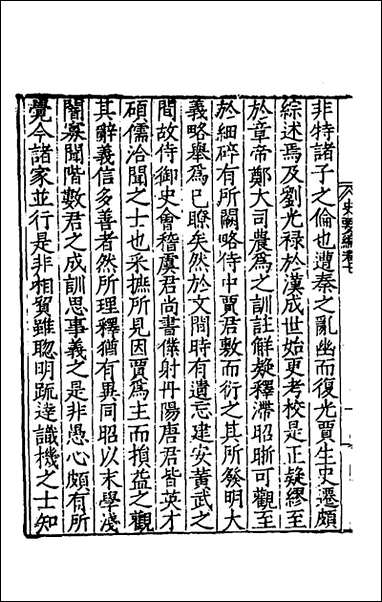 史要編卷七
非特諸子之倫也遭秦之亂幽而復光賈生史遷頗
綜述焉及劉光祿於漢成世始更考校是正疑繆至
於章帝鄭大司農為之訓註解疑釋滯昭晰可觀至
於細碎有所闕略侍中賈君敷而衍之其所發明大
義略舉為已瞭矣然於文間時有遺忘建安黃武之
間故侍御史會稽虞君尚書僕射丹陽唐君皆英才
碩儒洽聞之士也采摭所見因賈為主而損益之觀
其辭義信多善者然所理釋猶有異同昭以末學淺
闇寡聞階數君之成訓思事義之是非愚心頗有所
覺今諸家並行是非相貿雖聰明疏達識機之士知